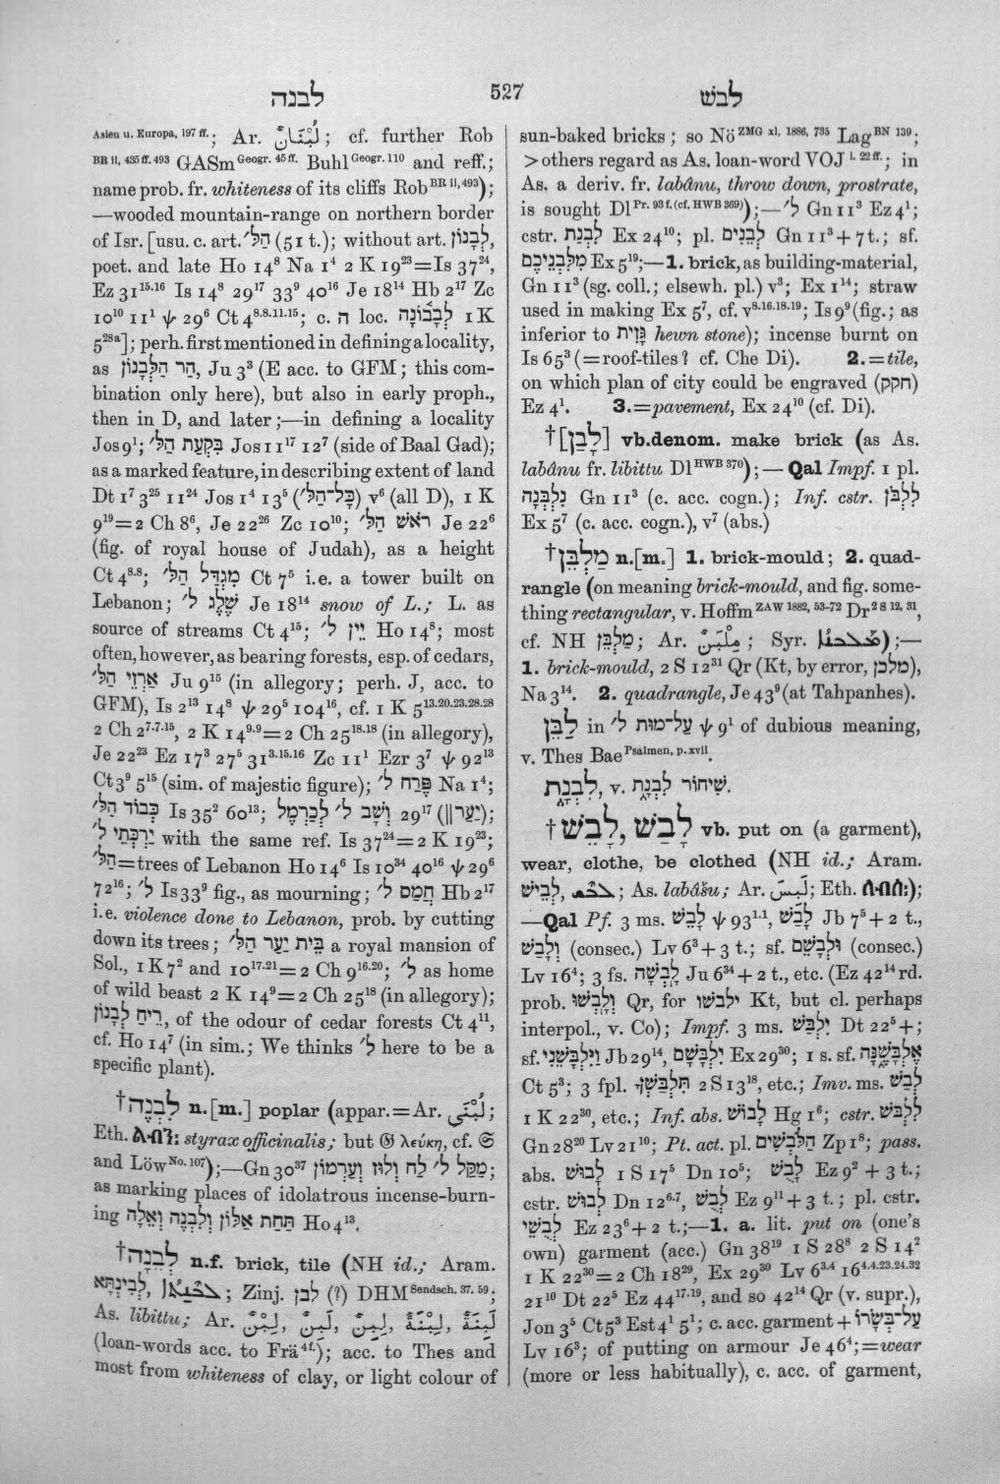 לבנה
527
לבש
Asien u. Europa, 197 ff.; Ar. لُبْنَانُ; cf. further Rob
BR ii, 435 ff. 493 GASm Geogr. 45 ff. Buhl Geogr. 110 and reff.;
name prob. fr. whiteness of its cliffs Rob BR ii, 493);
—wooded mountain-range on northern border
of Isr. [usu. c. art. הַלּ׳ (51 t.); without art. לְבָנוֹן,
poet. and late Ho 14⁸ Na 1⁴ 2 K 19²³=Is 37²⁴,
Ez 31¹⁵·¹⁶ Is 14⁸ 29¹⁷ 33⁹ 40¹⁶ Je 18¹⁴ Hb 2¹⁷ Zc
10¹⁰ 11¹ ψ 29⁶ Ct 4⁸·⁸·¹¹·¹⁵; c. ה loc. לְבָנ֫וֹנָה 1 K
5²⁸ᵃ]; perh. first mentioned in defining a locality,
as הַר הַלְּבָנוֹן, Ju 3³ (E acc. to GFM; this com-
bination only here), but also in early proph.,
then in D, and later;—in defining a locality
Jos 9¹; בִּקְעַת הַלּ׳ Jos 11¹⁷ 12⁷ (side of Baal Gad);
as a marked feature, in describing extent of land
Dt 1⁷ 3²⁵ 11²⁴ Jos 1⁴ 13⁵ (כָּל־הַלּ׳) v⁶ (all D), 1 K
9¹⁹=2 Ch 8⁶, Je 22²⁶ Zc 10¹⁰; רֹאשׁ הַלּ׳ Je 22⁶
(fig. of royal house of Judah), as a height
Ct 4⁸·⁸; מִגְדַּל הַלּ׳ Ct 7⁵ i.e. a tower built on
Lebanon; שֶׁלֶג ל׳ Je 18¹⁴ snow of L.; L. as
source of streams Ct 4¹⁵; יֵין ל׳ Ho 14⁸; most
often, however, as bearing forests, esp. of cedars,
אַרְזֵי הַלּ׳ Ju 9¹⁵ (in allegory; perh. J, acc. to
GFM), Is 2¹³ 14⁸ ψ 29⁵ 104¹⁶, cf. 1 K 5¹³·²⁰·²³·²⁸·²⁸
2 Ch 2⁷·⁷·¹⁵, 2 K 14⁹·⁹=2 Ch 25¹⁸·¹⁸ (in allegory),
Je 22²³ Ez 17³ 27⁵ 31³·¹⁵·¹⁶ Zc 11¹ Ezr 3⁷ ψ 92¹³
Ct 3⁹ 5¹⁵ (sim. of majestic figure); פֶּרַח ל׳ Na 1⁴;
כְּבוֹד הַלּ׳ Is 35² 60¹³; וְשָׁב ל׳ לַכַּרְמֶל 29¹⁷ (‖יַעַר);
יַרְכְּתֵי ל׳ with the same ref. Is 37²⁴=2 K 19²³;
הַלּ׳=trees of Lebanon Ho 14⁶ Is 10³⁴ 40¹⁶ ψ 29⁶
72¹⁶; ל׳ Is 33⁹ fig., as mourning; חֲמַס ל׳ Hb 2¹⁷
i.e. violence done to Lebanon, prob. by cutting
down its trees; בֵּית יַעַר הַלּ׳ a royal mansion of
Sol., 1 K 7² and 10¹⁷·²¹=2 Ch 9¹⁶·²⁰; ל׳ as home
of wild beast 2 K 14⁹=2 Ch 25¹⁸ (in allegory);
רֵיחַ לְבָנוֹן, of the odour of cedar forests Ct 4¹¹,
cf. Ho 14⁷ (in sim.; We thinks ל׳ here to be a
specific plant).
†לִבְנֶה n.[m.] poplar (appar.=Ar. لُبْنَى;
Eth. ልብን፡ styrax officinalis; but 𝔊 λεύκη, cf. 𝔖
and Löw No. 107);—Gn 30³⁷ מַקַּל ל׳ לַח וְלוּז וְעַרְמוֹן;
as marking places of idolatrous incense-burn-
ing תַּחַת אַלּוֹן וְלִבְנֶה וְאֵלָה Ho 4¹³.
†לְבֵנָה n.f. brick, tile (NH id.; Aram.
לְבֵינְתָּא, ܠܒܢܬܐ; Zinj. לבן (?) DHM Sendsch. 37. 59;
As. libittu; Ar. لَبِنَةٌ, لِبْنَةٌ, لَبِنٌ, لَبْنٌ, لِبْنٌ
(loan-words acc. to Frä 4f.); acc. to Thes and
most from whiteness of clay, or light colour of
sun-baked bricks; so Nö ZMG xl, 1886, 735 Lag BN 139;
>others regard as As. loan-word VOJ i. 22 ff.; in
As. a deriv. fr. labânu, throw down, prostrate,
is sought Dl Pr. 93 f. (cf. HWB 369));—ל׳ Gn 11³ Ez 4¹;
cstr. לִבְנַת Ex 24¹⁰; pl. לְבֵנִים Gn 11³ + 7 t.; sf.
מִלִּבְנֵיכֶם Ex 5¹⁹;—1. brick, as building-material,
Gn 11³ (sg. coll.; elsewh. pl.) v³; Ex 1¹⁴; straw
used in making Ex 5⁷, cf. v⁸·¹⁶·¹⁸·¹⁹; Is 9⁹ (fig.; as
inferior to גָּזִית hewn stone); incense burnt on
Is 65³ (=roof-tiles? cf. Che Di). 2.=tile,
on which plan of city could be engraved (חקק)
Ez 4¹. 3.=pavement, Ex 24¹⁰ (cf. Di).
†[לָבַן] vb.denom. make brick (as As.
labânu fr. libittu Dl HWB 370);—Qal Impf. 1 pl.
נִלְבְּנָה Gn 11³ (c. acc. cogn.); Inf. cstr. לִלְבֹּן
Ex 5⁷ (c. acc. cogn.), v⁷ (abs.)
†מַלְבֵּן n.[m.] 1. brick-mould; 2. quad-
rangle (on meaning brick-mould, and fig. some-
thing rectangular, v. Hoffm ZAW 1882, 53-72 Dr 2 S 12, 31,
cf. NH מַלְבֵּן; Ar. مِلْبَنٌ; Syr. ܡܠܒܢܐ);—
1. brick-mould, 2 S 12³¹ Qr (Kt, by error, מלכן),
Na 3¹⁴. 2. quadrangle, Je 43⁹ (at Tahpanhes).
לַבֵּן in עַל־מוּת ל׳ ψ 9¹ of dubious meaning,
v. Thes Bae Psalmen, p. xvii.
לִבְנָת, v. שִׁיחוֹר לִבְנָת.
†לָבַשׁ, לָבֵשׁ vb. put on (a garment),
wear, clothe, be clothed (NH id.; Aram.
לְבֵישׁ, ܠܒܫ; As. labâšu; Ar. لَبِسَ; Eth. ለብሰ፡);
—Qal Pf. 3 ms. לָבֵשׁ ψ 93¹·¹, לָבַשׁ Jb 7⁵ + 2 t.,
וְלָבַשׁ (consec.) Lv 6³ + 3 t.; sf. וּלְבֵשָׁם (consec.)
Lv 16⁴; 3 fs. לָֽבְשָׁה Ju 6³⁴ + 2 t., etc. (Ez 42¹⁴ rd.
prob. וְלָֽבְשׁוּ Qr, for ילבשו Kt, but cl. perhaps
interpol., v. Co); Impf. 3 ms. יִלְבַּשׁ Dt 22⁵+;
sf. וַיִּלְבָּשֵׁנִי Jb 29¹⁴, יִלְבָּשָׁם Ex 29³⁰; 1 s. sf. אֶלְבָּשֶׁנָּה
Ct 5³; 3 fpl. תִּלְבַּשְׁןָ 2 S 13¹⁸, etc.; Imv. ms. לְבַשׁ
1 K 22³⁰, etc.; Inf. abs. לָבוֹשׁ Hg 1⁶; cstr. לִלְבֹּשׁ
Gn 28²⁰ Lv 21¹⁰; Pt. act. pl. הַלֹּבְשִׁים Zp 1⁸; pass.
abs. לָבוּשׁ 1 S 17⁵ Dn 10⁵; לָבֻשׁ Ez 9² + 3 t.;
cstr. לְבוּשׁ Dn 12⁶·⁷, לְבֻשׁ Ez 9¹¹ + 3 t.; pl. cstr.
לְבֻשֵׁי Ez 23⁶ + 2 t.;—1. a. lit. put on (one's
own) garment (acc.) Gn 38¹⁹ 1 S 28⁸ 2 S 14²
1 K 22³⁰=2 Ch 18²⁹, Ex 29³⁰ Lv 6³·⁴ 16⁴·⁴·²³·²⁴·³²
21¹⁰ Dt 22⁵ Ez 44¹⁷·¹⁹, and so 42¹⁴ Qr (v. supr.),
Jon 3⁵ Ct 5³ Est 4¹ 5¹; c. acc. garment + עַל־בְּשָׂרוֹ
Lv 16³; of putting on armour Je 46⁴;=wear
(more or less habitually), c. acc. of garment,